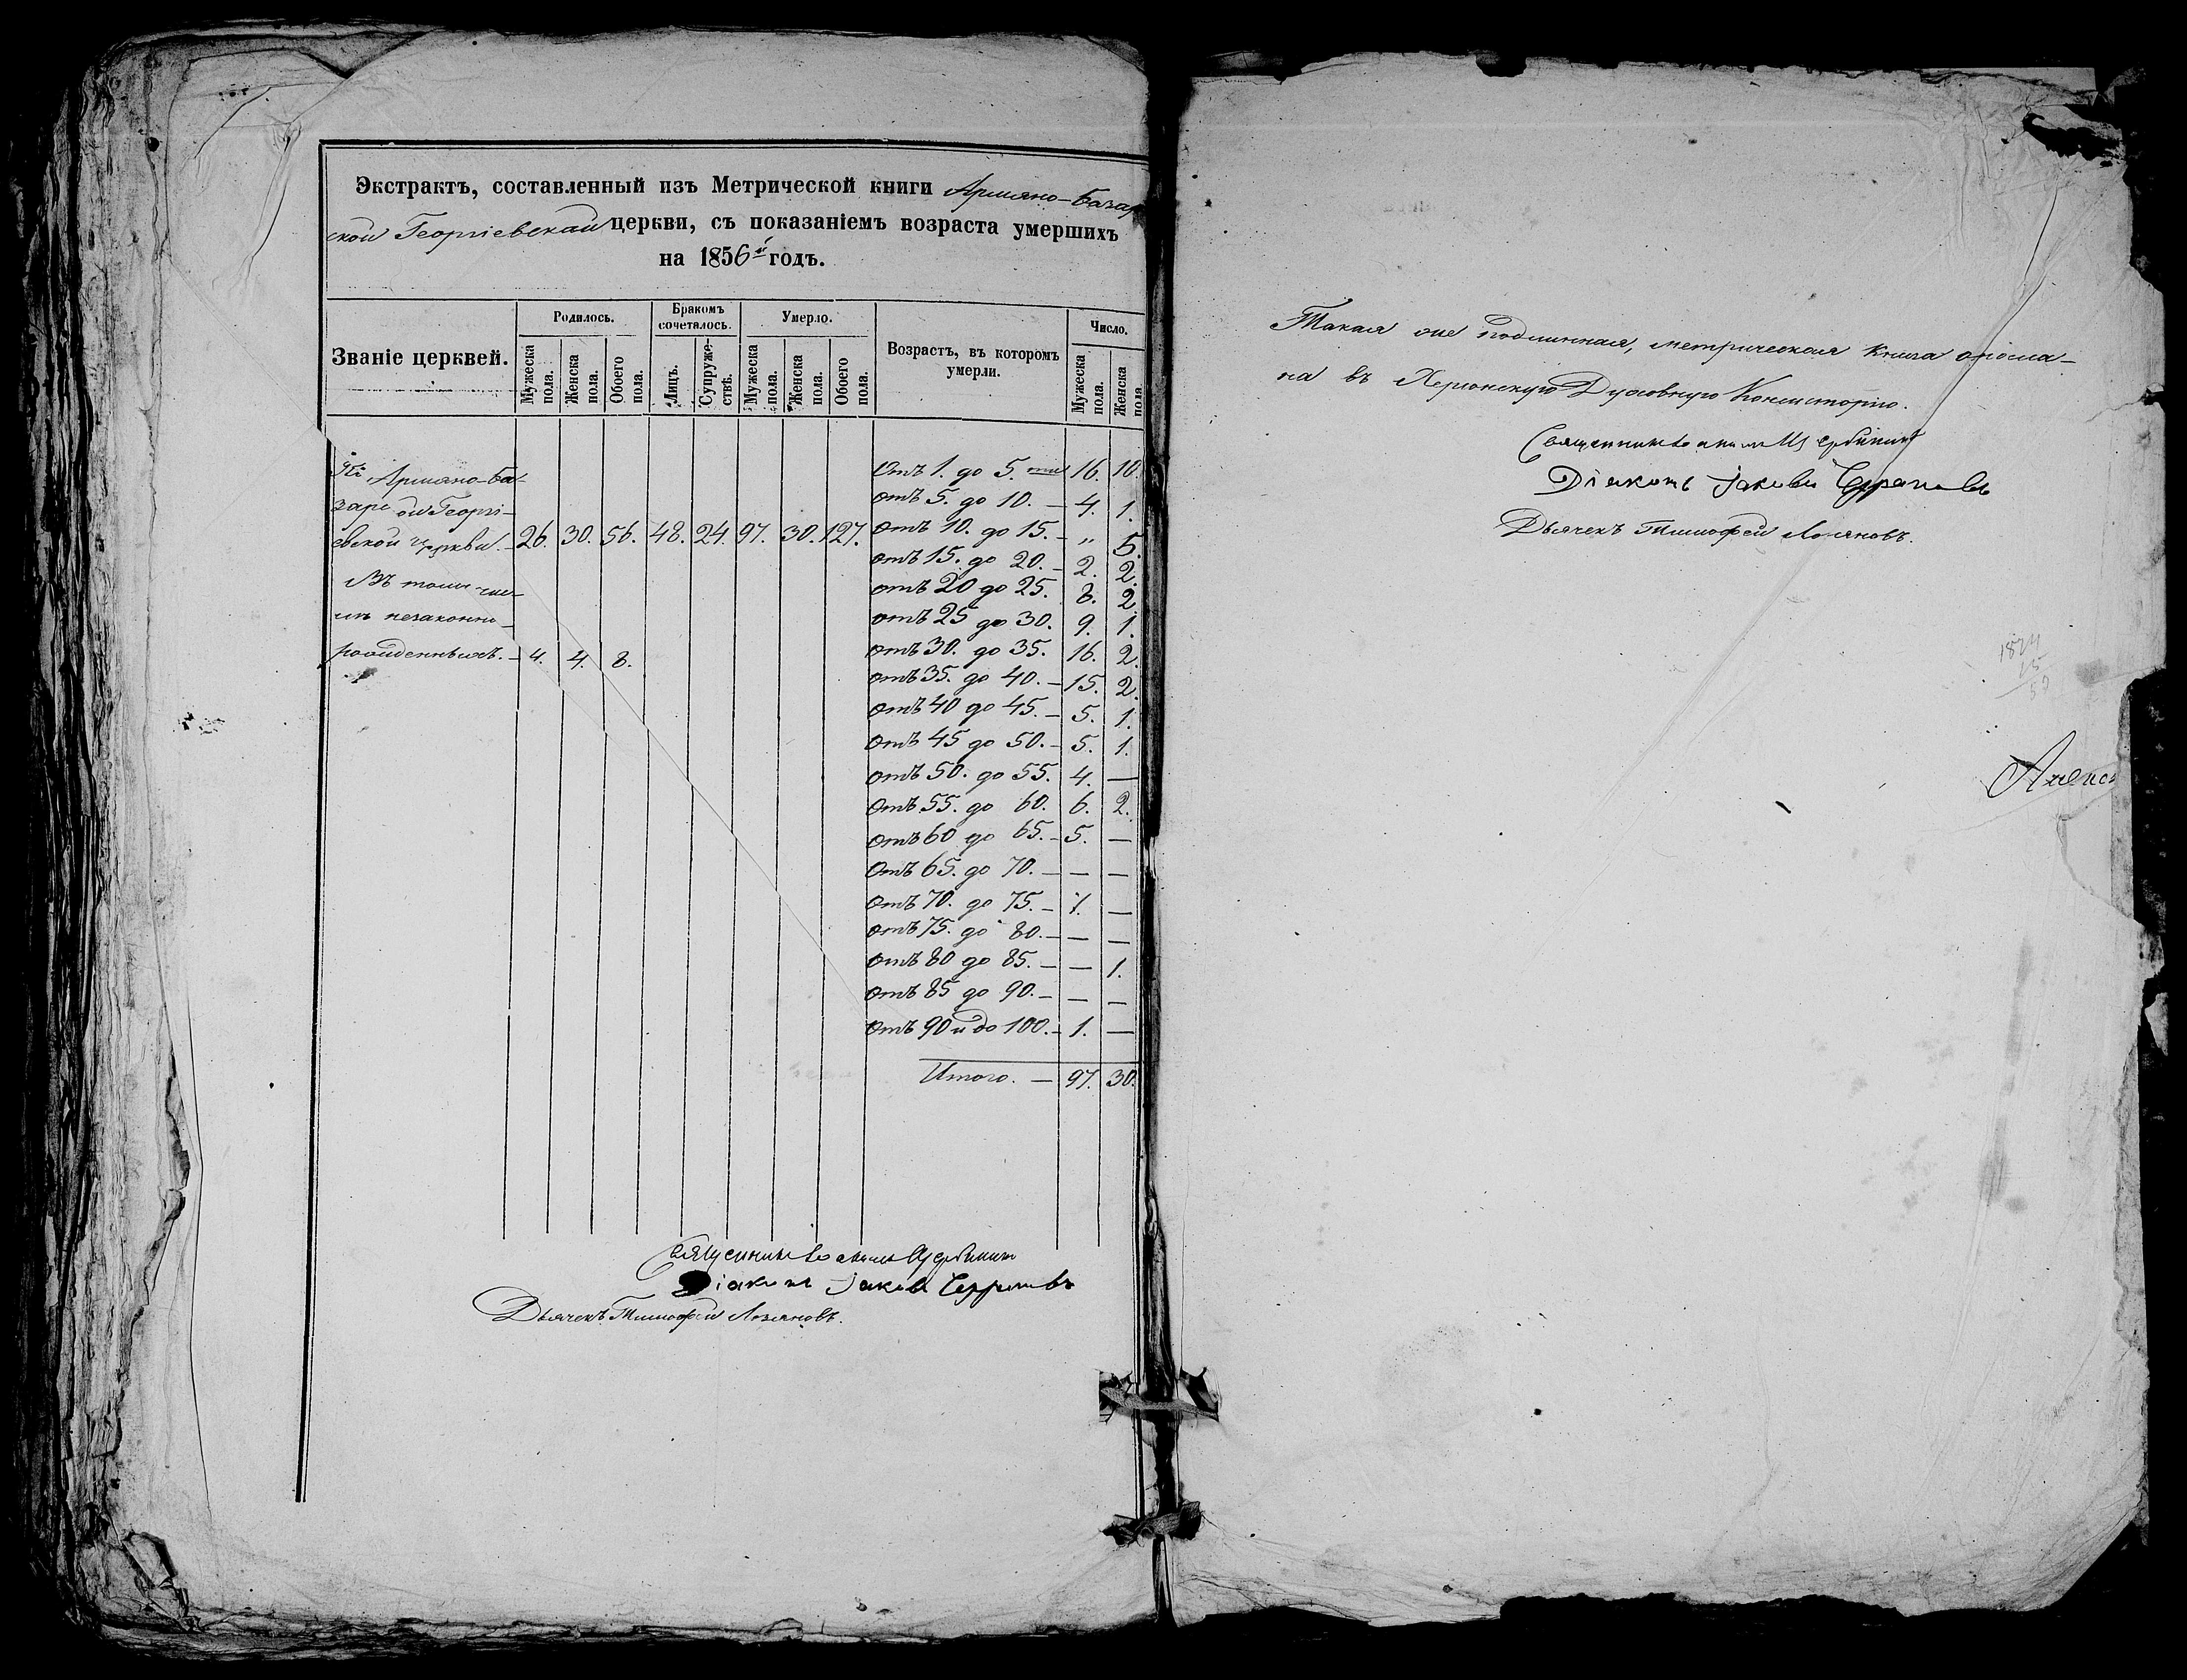 Экстрактъ, составленный изъ Метрической книги Армяно-Базар
ской Георгіевской церкви, съ показаніемъ возраста умершихъ
на 1856й годъ.
Званіе церквей.
Родилось.
Мужеска пола.
Женска пола.
Обоего пола.
Бракомъ сочеталось.
Лицъ.
Супружествъ.
Умерло.
Мужеска пола.
Женска пола.
Обоего пола.
Возрастъ, въ которомъ умерли.
Число.
Мужеска пола.
Женска пола.
Армяно-Ба-
зарс ой Георгі-
евской церкви. - 26. 30. 56. 48. 24. 97. 30. 127.
Въ томъ чис-
незаконно-
рожденныхъ. - 4. 4. 8.
Отъ 1. до 5. 16. 10.
отъ 5. до 10. - 4. 1.
отъ 10. до 15. - „ 5.
отъ 15. до 20. - 2. 2.
отъ 20 до 25. 8. 2
отъ 25 до 30. 9. 1.
отъ 30. до 35. 16. 2.
отъ 35. до 40. - 15. 2.
отъ 40 до 45. - 5. 1.
отъ 45 до 50. - 5. 1.
отъ 50. до 55. 4. —
отъ 55. до 60. 6. 2.
отъ 60 до 65. - 5. —
отъ 65. до 70. - — —
отъ 70. до 75. - 1. —
отъ 75. до 80. - — —
отъ 80 до 85. - — 1.
отъ 85 до 90. - — —
отъ 90 и до 100. - 1. —
Итого. — 97. 30.
Священникъ Іоаннъ Щербининъ
Діаконъ Іаковъ
Дьячекъ Тимофей Лозановъ.
Такая же подлинная, метрическая книга отосла-
на въ Херсонскую Духовную Консисторію.
Священникъ Іоаннъ Щербининъ
Діаконъ Іаковъ
Дьячекъ Тимофей Лозановъ.